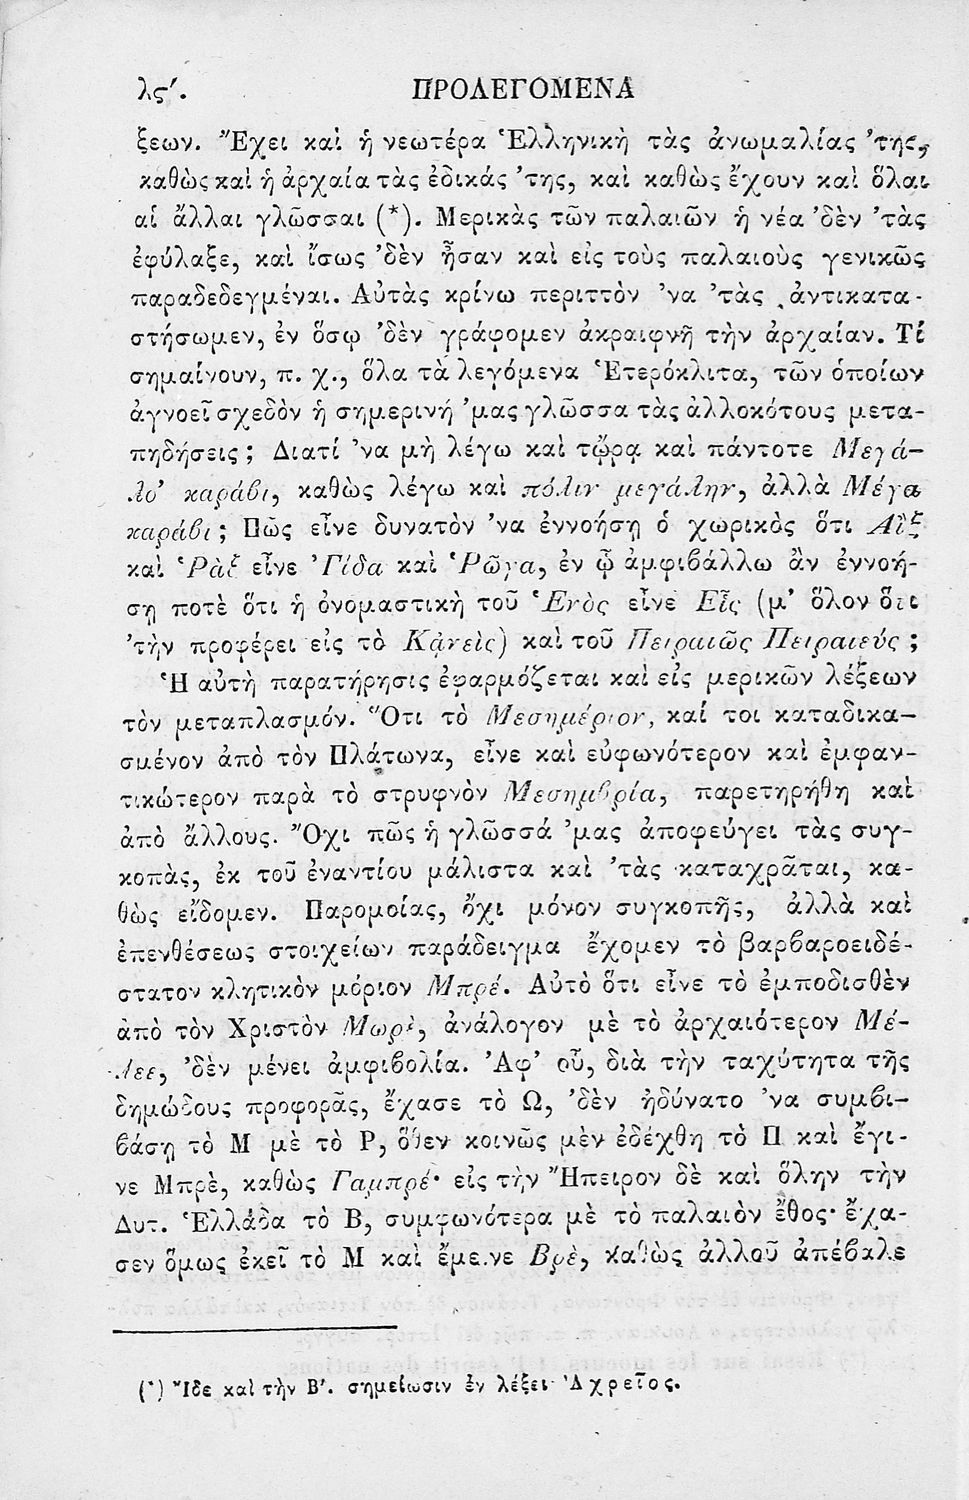 λς΄. ΠΡΟΛΕΓΟΜΕΝΑ
ξεων. Ἔχει καὶ ἡ νεωτέρα Ἑλληνικὴ τὰς ἀνωμαλίας ’της,
καθὼς καὶ ἡ ἀρχαία τὰς ἐδικάς ’της, καὶ καθὼς ἔχουν καὶ ὅλαι
αἱ ἄλλαι γλῶσσαι (*). Μερικὰς τῶν παλαιῶν ἡ νέα ’δὲν ’τὰς
ἐφύλαξε, καὶ ἴσως ’δὲν ἦσαν καὶ εἰς τοὺς παλαιοὺς γενικῶς
παραδεδεγμέναι. Αὐτὰς κρίνω περιττὸν ’να ’τὰς ἀντικατα-
στήσωμεν, ἐν ὅσῳ ’δὲν γράφομεν ἀκραιφνῆ τὴν ἀρχαίαν. Τί
σημαίνουν, π. χ., ὅλα τὰ λεγόμενα Ἑτερόκλιτα, τῶν ὁποίων
ἀγνοεῖ σχεδὸν ἡ σημερινή ’μας γλῶσσα τὰς ἀλλοκότους μετα-
πηδήσεις; Διατί ’να μὴ λέγω καὶ τῴρα καὶ πάντοτε Μεγά-
λο’ καράβι, καθὼς λέγω καὶ πόλιν μεγάλην, ἀλλὰ Μέγα
καράβι; Πῶς εἶνε δυνατὸν ’να ἐννοήσῃ ὁ χωρικὸς ὅτι Αἲξ
καὶ Ῥὰξ εἶνε Γίδα καὶ Ῥῶγα, ἐν ᾧ ἀμφιβάλλω ἂν ἐννοή-
σῃ ποτὲ ὅτι ἡ ὀνομαστικὴ τοῦ Ἑνὸς εἶνε Εἷς (μ’ ὅλον ὅτι
’τὴν προφέρει εἰς τὸ Κᾀνεὶς) καὶ τοῦ Πειραιῶς Πειραιεύς;
Ἡ αὐτὴ παρατήρησις ἐφαρμόζεται καὶ εἰς μερικῶν λέξεων
τὸν μεταπλασμόν. Ὅτι τὸ Μεσημέριον, καί τοι καταδικα-
σμένον ἀπὸ τὸν Πλάτωνα, εἶνε καὶ εὐφωνότερον καὶ ἐμφαν-
τικώτερον παρὰ τὸ στρυφνὸν Μεσημβρία, παρετηρήθη καὶ
ἀπὸ ἄλλους. Ὄχι πῶς ἡ γλῶσσά ’μας ἀποφεύγει τὰς συγ-
κοπὰς, ἐκ τοῦ ἐναντίου μάλιστα καὶ ’τὰς καταχρᾶται, κα-
θὼς εἴδομεν. Παρομοίας, ὄχι μόνον συγκοπῆς, ἀλλὰ καὶ
ἐπενθέσεως στοιχείων παράδειγμα ἔχομεν τὸ βαρβαροειδέ-
στατον κλητικὸν μόριον Μπρέ. Αὐτὸ ὅτι εἶνε τὸ ἐμποδισθὲν
ἀπὸ τὸν Χριστὸν Μωρὲ, ἀνάλογον μὲ τὸ ἀρχαιότερον Μέ-
λεε, ’δὲν μένει ἀμφιβολία. Ἀφ’ οὗ, διὰ τὴν ταχύτητα τῆς
δημώδους προφορᾶς, ἔχασε τὸ Ω, ’δὲν ἠδύνατο ’να συμβι-
βάσῃ τὸ Μ μὲ τὸ Ρ, ὅθεν κοινῶς μὲν ἐδέχθη τὸ Π καὶ ἔγι-
νε Μπρὲ, καθὼς Γαμπρέ· εἰς τὴν Ἤπειρον δὲ καὶ ὅλην τὴν
Δυτ. Ἑλλάδα τὸ Β, συμφωνότερα μὲ τὸ παλαιὸν ἔθος· ἔχα-
σεν ὅμως ἐκεῖ τὸ Μ καὶ ἔμεινε Βρὲ, καθὼς ἀλλοῦ ἀπέβαλε
(*) Ἴδε καὶ τὴν Β′. σημείωσιν ἐν λέξει Ἀχρεῖος.